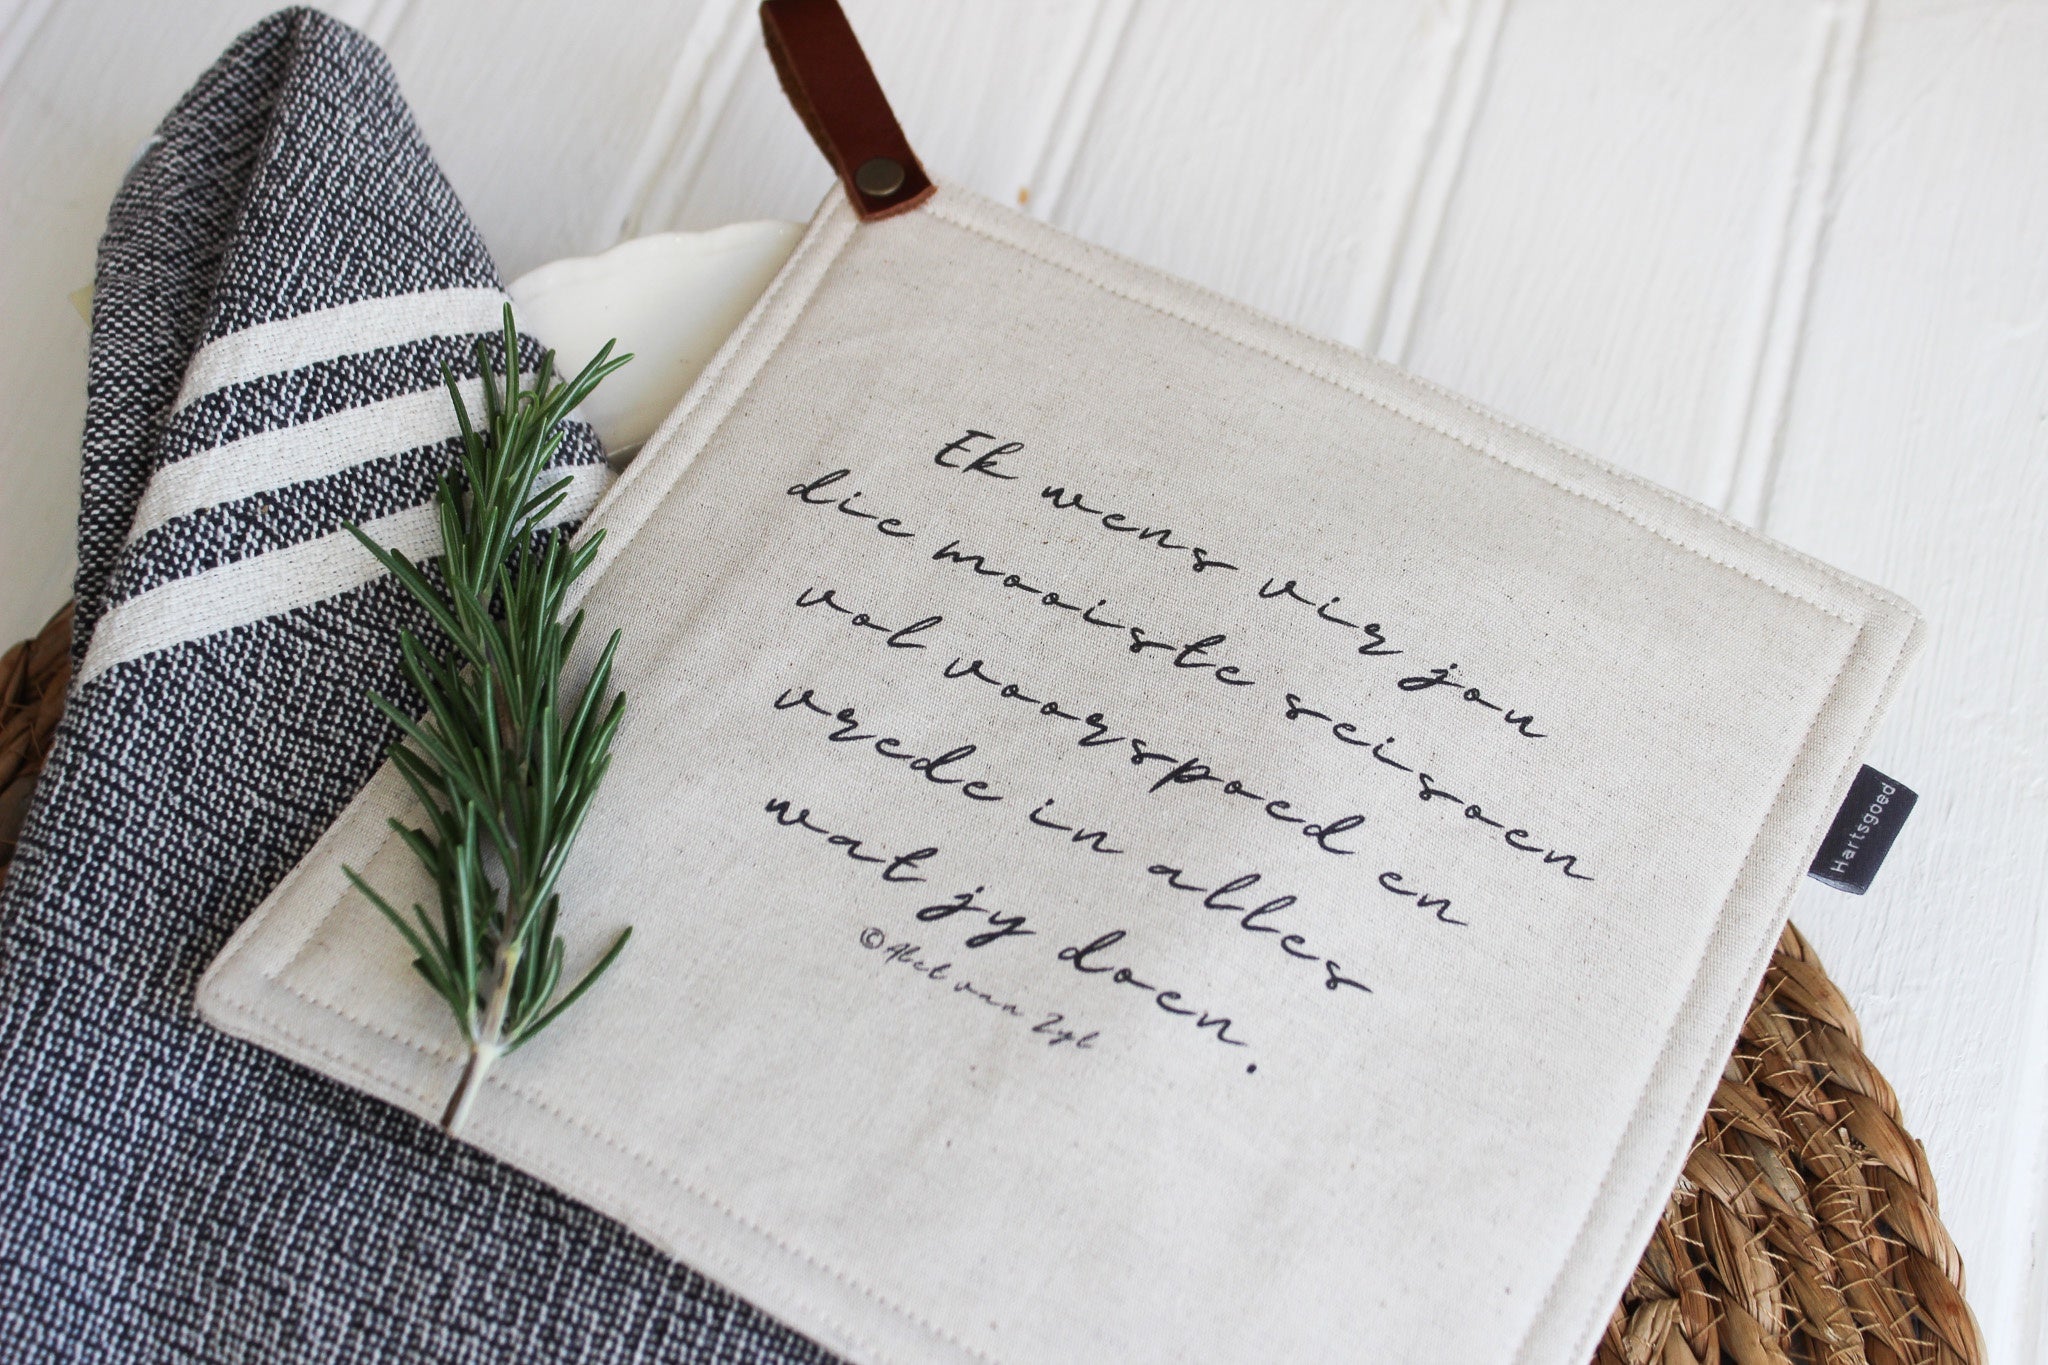 Ek wens vir jou
die mooiste seisoen
vol voorspoed en
vrede in alles
wat jy doen.
© Abel van Zyl
Hartsgoed